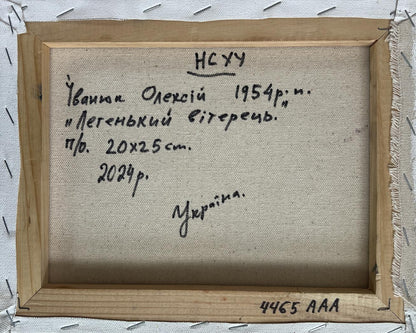 НСХУ
Іванюк Олексій 1954р.н.
"Легенький вітерець."
п/о. 20х25см.
2024р.
Україна.
4465 ААА